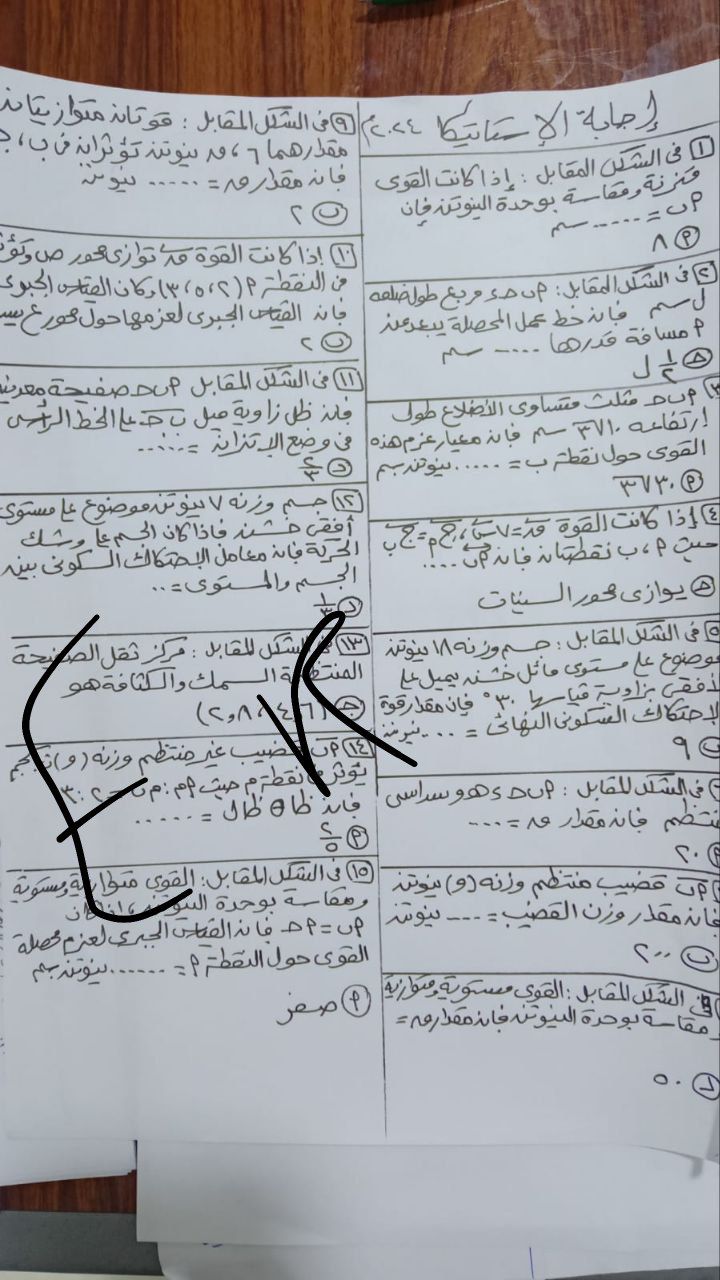 إجابة الإستاتيكا ٢٠٢٤م
١ فى الشكل المقابل : إذا كانت القوى
متزنة ومقاسة بوحدة النيوتن فإن
م ن = ..... سم
٨
٢ فى الشكل المقابل : م ب ح ء مربع طول ضلعه
ل سم فإن خط عمل المحصلة يبعد عن
م مسافة قدرها ..... سم
١/٢ ل
م ب ح مثلث متساوى الأضلاع طول
ارتفاعه ١٠√٣ سم فإن معيار عزم هذه
القوى حول نقطة ب = ..... نيوتن.سم
٣٠√٣
٤ إذا كانت القوة
حيث م ، ب نقطتان فإن م ب ....
يوازى محور السينات
٥ فى الشكل المقابل : جسم وزنه ١٨ نيوتن
موضوع على مستوى مائل خشن يميل على
لأفقى بزاوية قياسها ٣٠° فإن مقدار قوة
لاحتكاك السكونى النهائى = .... نيوتن
٩
فى الشكل المقابل : م ب ح ء هـ و سداسى
منتظم فإن مقدار = ....
٢٠
م ب قضيب منتظم وزنه (و) نيوتن
فإن مقدار وزن القضيب = .... نيوتن
٢٠٠
فى الشكل المقابل : القوى مستوية ومتوازية
ومقاسة بوحدة النيوتن فإن مقدار =
٥٠
٩ فى الشكل المقابل : قوتان متوازيتان
مقدارهما ٦ ، نيوتن تؤثران فى ب ،
فإن مقدار = ..... نيوتن
٢
١٠ إذا كانت القوة توازى محور ص وتؤثر
فى النقطة م (٣،٥،٢) وكان القياس الجبرى
فإن القياس الجبرى لعزمها حول محور ع
٢
١١ فى الشكل المقابل م ب ح صفيحة معدنية
فإن ظل زاوية ميل ب ح على الخط الرأسى
فى وضع الإتزان = .....
٢/٣
١٢ جسم وزنه ٧ نيوتن موضوع على مستوى
أفقى خشن فإذا كان الجسم على وشك
الحركة فإن معامل الاحتكاك السكونى بين
الجسم والمستوى = ...
١/٣
١٣ فى الشكل المقابل : مركز ثقل الصفيحة
السمك والكثافة هو
١٤ م ب قضيب غير منتظم وزنه (و) ث.كجم
يؤثر نقطة م حيث
فإن ظا θ ظا ل = .....
٢/٥
١٥ فى الشكل المقابل : القوى متوازية ومستوية
ومقاسة بوحدة النيوتن
م ب = م ح فإن القياس الجبرى لعزم محصلة
القوى حول النقطة م = ...... نيوتن.سم
صفر